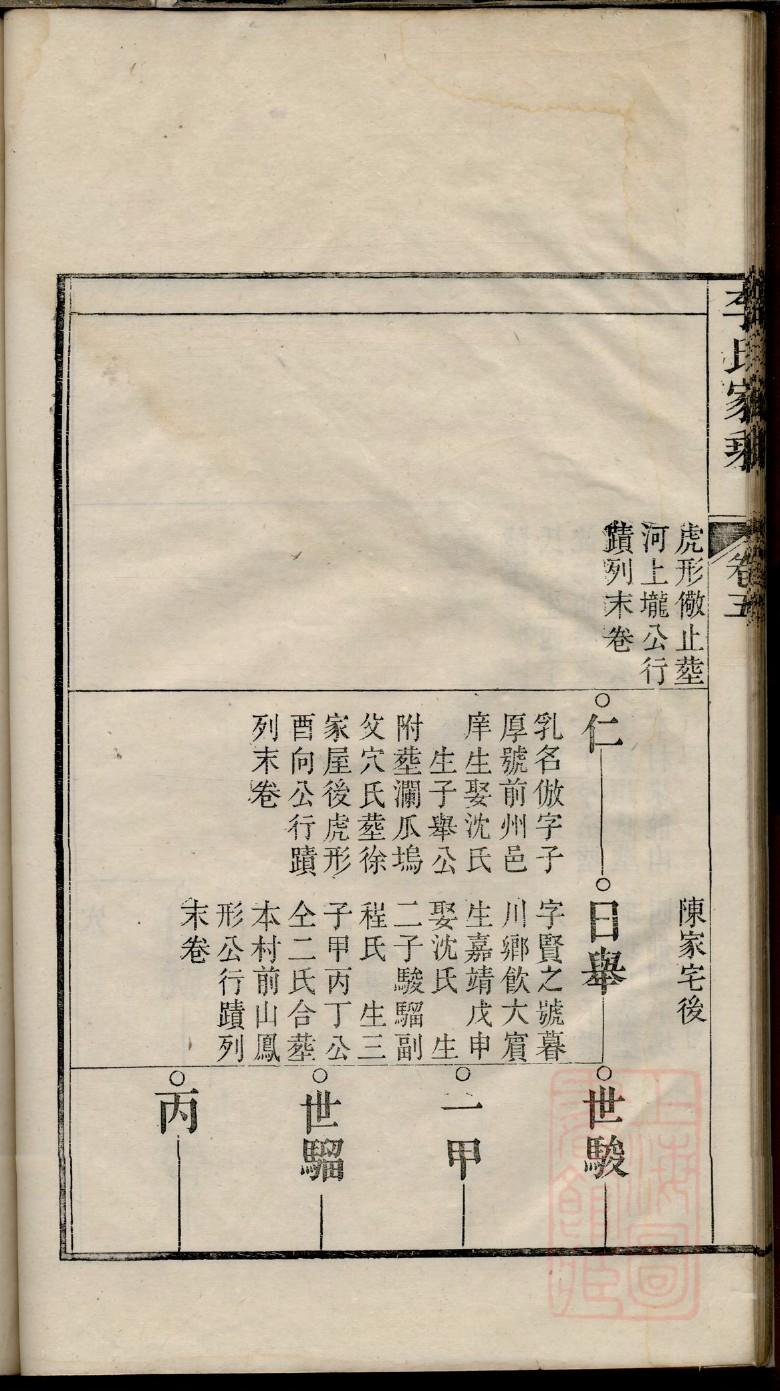 李氏家乘
卷五
虎形儆止塟
河上壠公行
蹟列末卷
陳家宅後
仁
乳名倣字子
厚號前州邑
庠生娶沈氏
生子舉公
附塟瀾瓜塢
父穴氏塟徐
家屋後虎形
酉向公行蹟
列末卷
日舉
字賢之號暮
川鄉飲大賓
生嘉靖戊申
娶沈氏　生
二子駿騮副
程氏　生三
子甲丙丁公
仝二氏合塟
本村前山鳳
形公行蹟列
末卷
世駿
一甲
世騮
丙
上海圖
書館藏